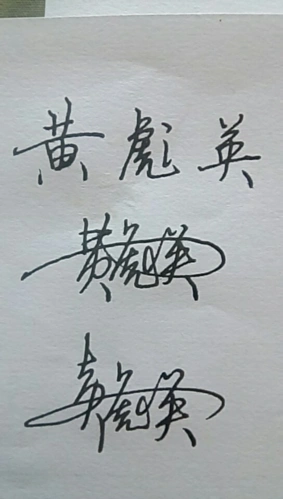 黄彪英
黄彪英
黄彪英